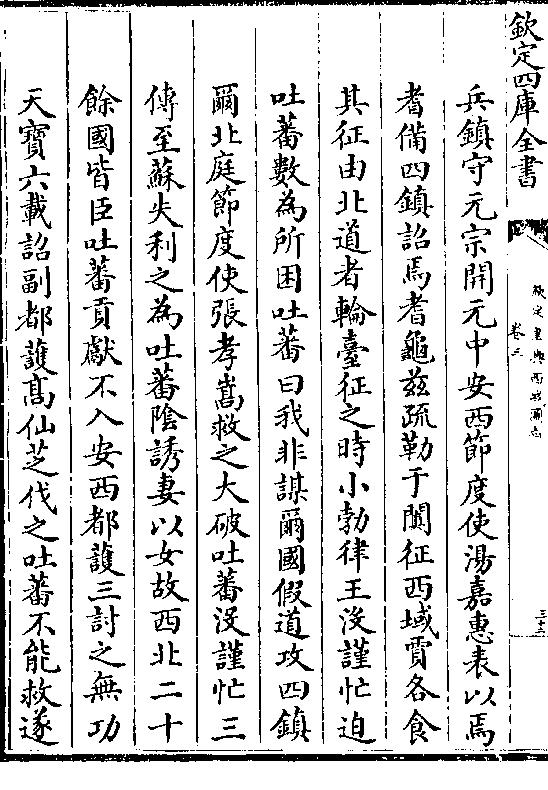 欽定四庫全書
欽定皇輿西域圖志
卷三
三十二
兵鎮守元宗開元中安西節度使湯嘉惠表以焉
耆備四鎮詔焉耆龜兹疏勒于闐征西域賈各食
其征由北道者輪臺征之時小勃律王没謹忙迫
吐蕃數為所困吐蕃曰我非謀爾國假道攻四鎮
爾北庭節度使張孝嵩救之大破吐蕃没謹忙三
傳至蘇失利之為吐蕃隂誘妻以女故西北二十
餘國皆臣吐蕃貢獻不入安西都護三討之無功
天寶六載詔副都護髙仙芝伐之吐蕃不能救遂